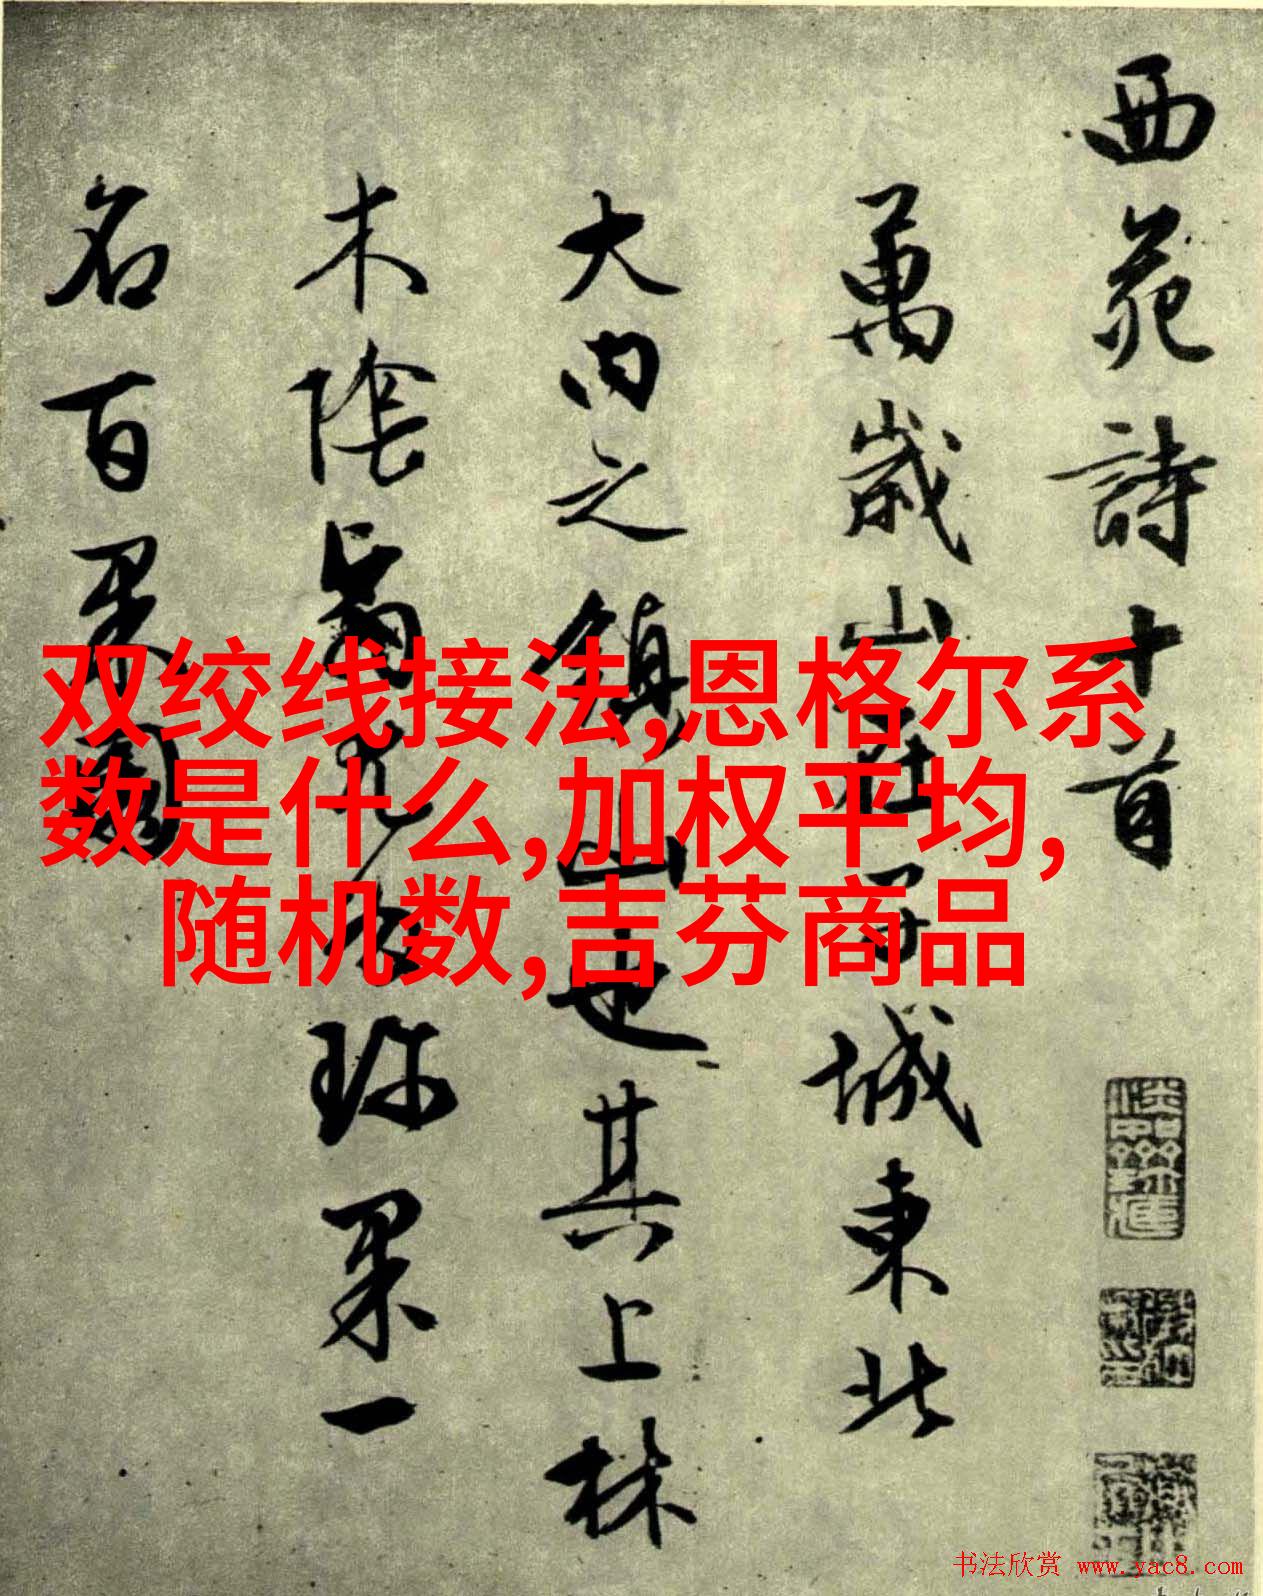 西苑詩十首
萬歲山在子城東北
大内之鎮山也其上林
木陰翳尤多珍果一
名百果園
双绞线接法,恩格尔系
数是什么,加权平均,
随机数,吉芬商品
书法欣赏 www.yac8.com